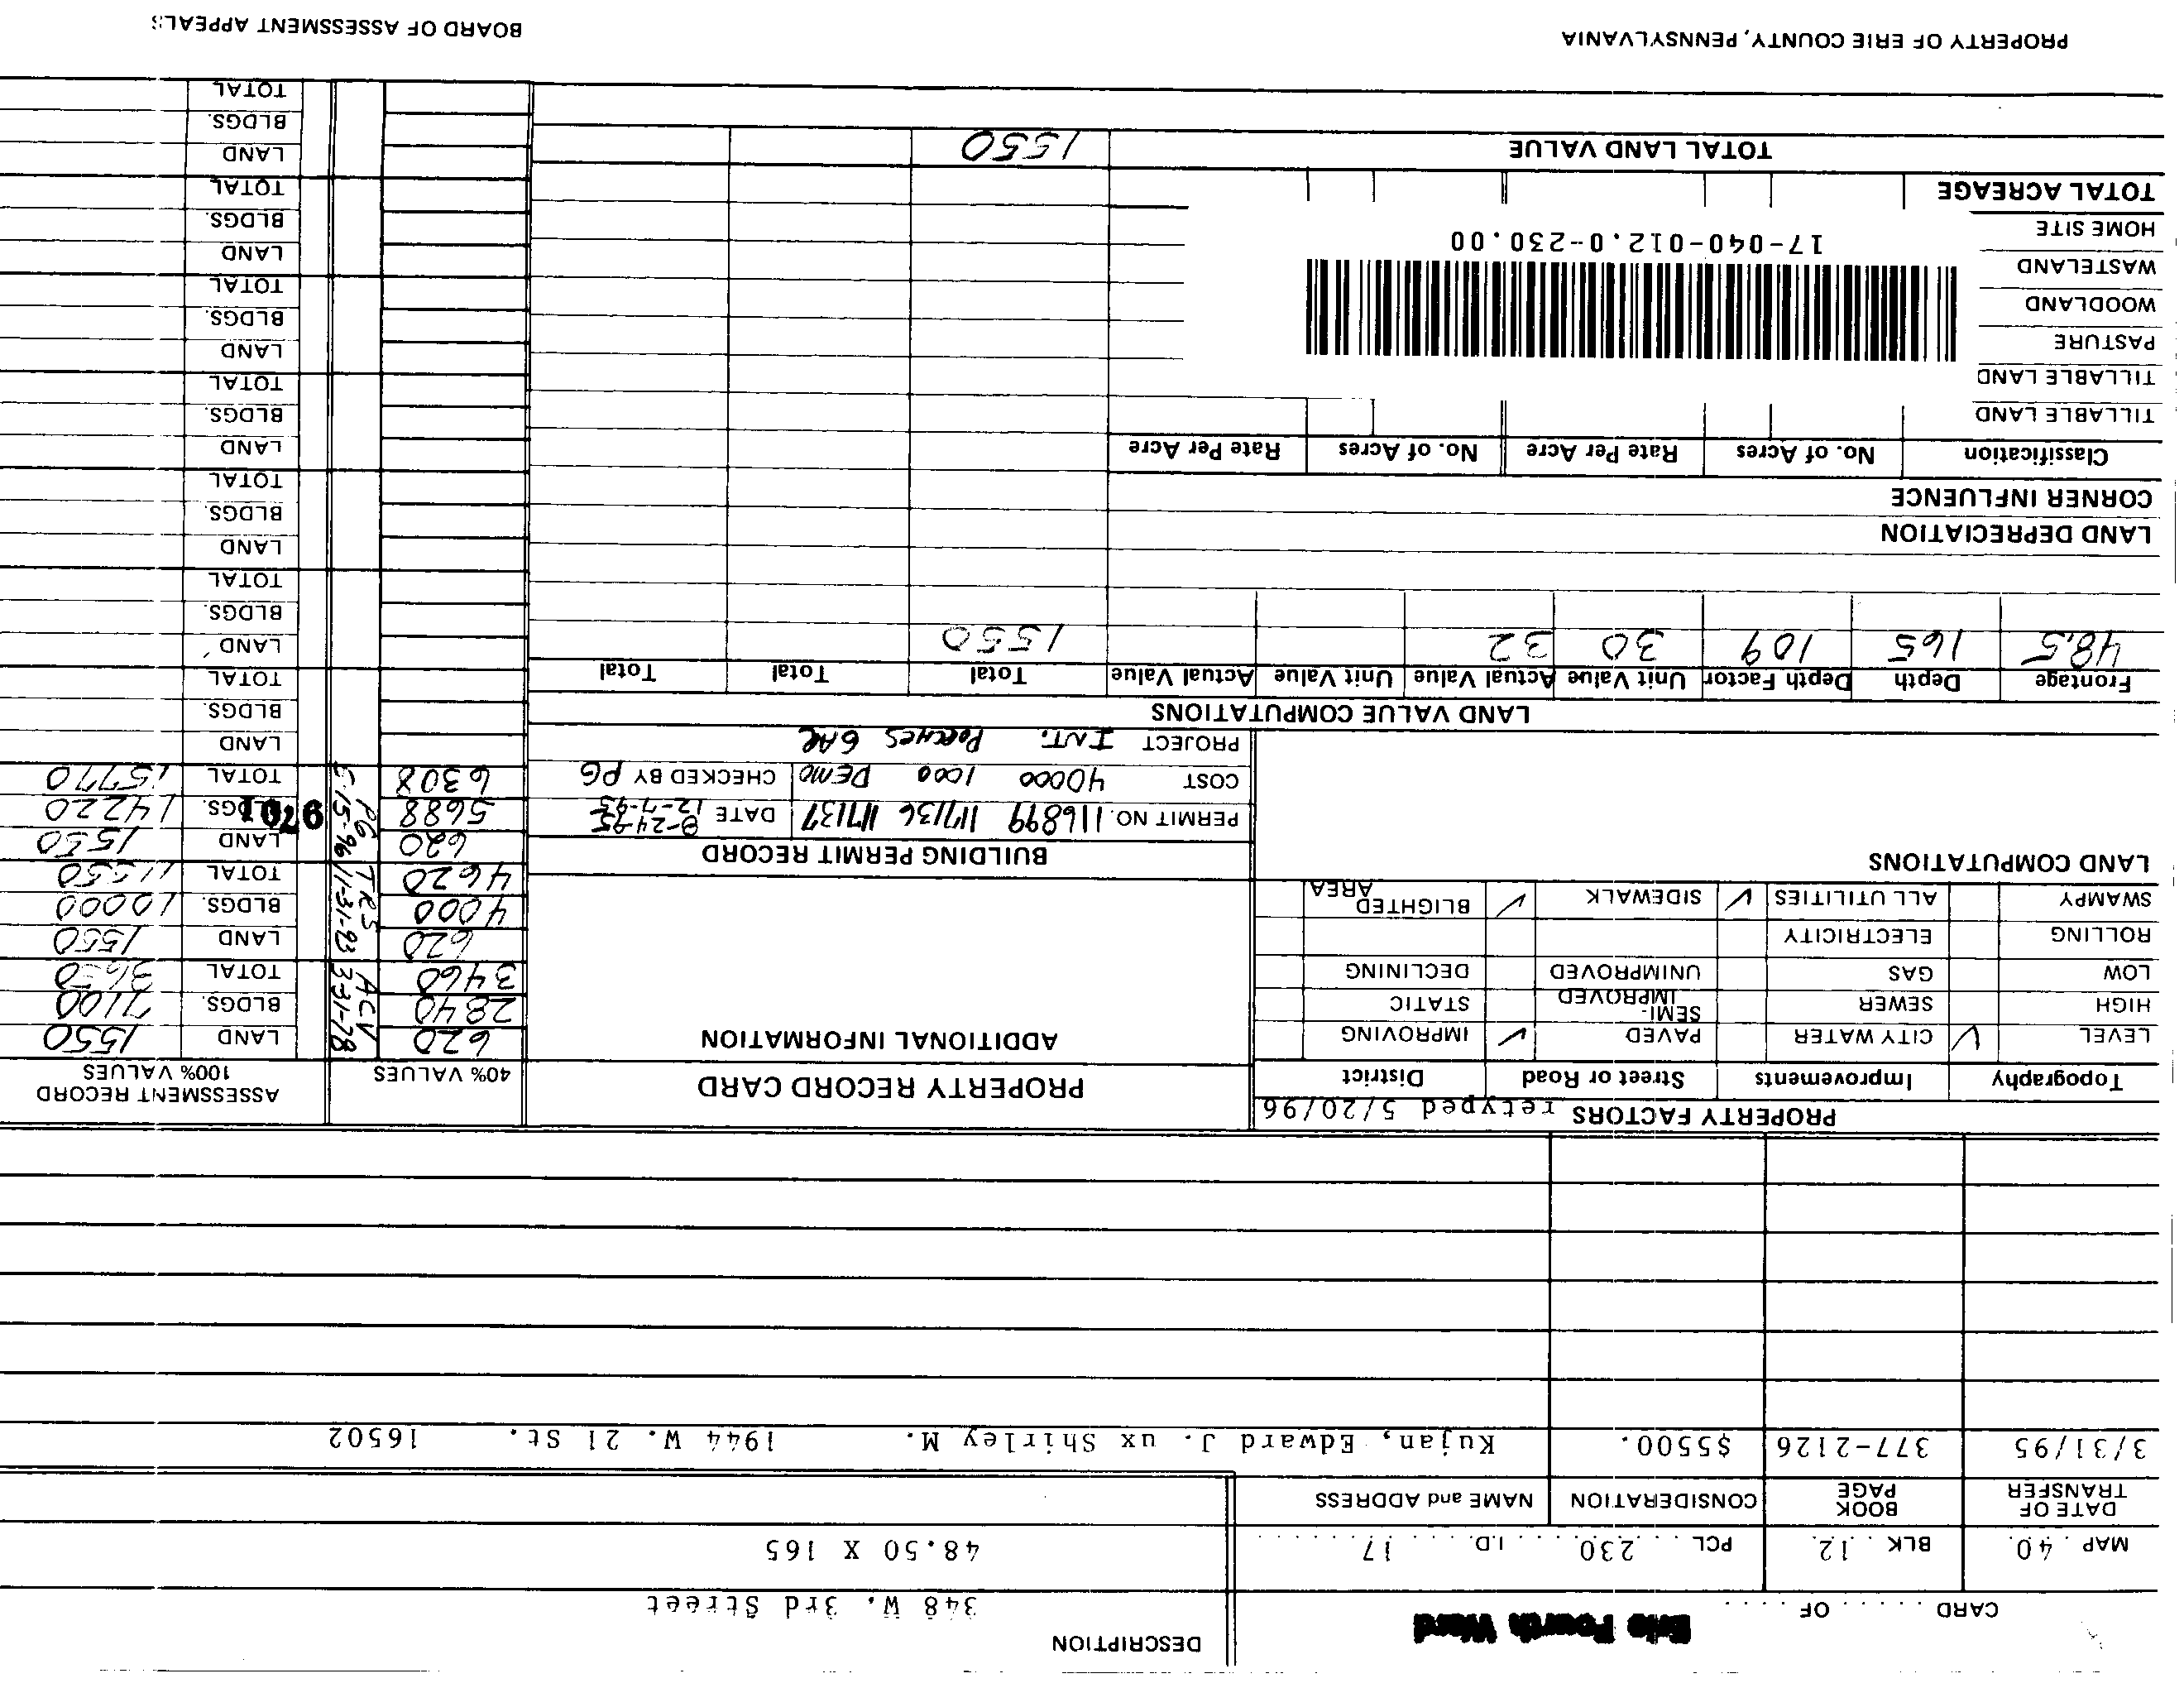 CARD ...... OF ..... Erie Fourth Ward DESCRIPTION
348 W. 3rd Street
MAP . 40. BLK . . 12. PCL . . . 230. . . . I.D. . . . 17. . . . . . . . 48.50 X 165
DATE OF TRANSFER BOOK PAGE CONSIDERATION NAME and ADDRESS
3/31/95 377-2126 $5500. Kujan, Edward J. ux Shirley M. 1944 W. 21 St. 16502
PROPERTY FACTORS retyped 5/20/96
Topography Improvements Street or Road District
LEVEL ✓ CITY WATER PAVED ✓ IMPROVING
HIGH SEWER SEMI-IMPROVED STATIC
LOW GAS UNIMPROVED DECLINING
ROLLING ELECTRICITY
SWAMPY ALL UTILITIES ✓ SIDEWALK ✓ BLIGHTED AREA
LAND COMPUTATIONS
PROPERTY RECORD CARD
ADDITIONAL INFORMATION
BUILDING PERMIT RECORD
PERMIT NO. 116899 117136 117137 DATE 8-24-95 12-7-95
COST 40000 1000 DEMO CHECKED BY PG
PROJECT INT. PORCHES GAR
40% VALUES ASSESSMENT RECORD 100% VALUES
620 LAND 1550
2840 BLDGS. 7100
3460 TOTAL
ACV 3-31-78
620 LAND 1550
4000 BLDGS. 10000
4620 TOTAL 11550
TRS
620 LAND 1550
5688 BLDGS. 14220
6308 TOTAL 15770
PG
LAND
BLDGS.
TOTAL
LAND
BLDGS.
TOTAL
LAND
BLDGS.
TOTAL
LAND
BLDGS.
TOTAL
LAND
BLDGS.
TOTAL
LAND
BLDGS.
TOTAL
LAND
BLDGS.
TOTAL
LAND VALUE COMPUTATIONS
Frontage Depth Depth Factor Unit Value Actual Value Unit Value Actual Value Total Total Total
48.5 165 109 30 32 1550
LAND DEPRECIATION
CORNER INFLUENCE
Classification No. of Acres Rate Per Acre No. of Acres Rate Per Acre
TILLABLE LAND
TILLABLE LAND
PASTURE
WOODLAND
WASTELAND
HOME SITE
17-040-012.0-230.00
TOTAL ACREAGE
TOTAL LAND VALUE 1550
PROPERTY OF ERIE COUNTY, PENNSYLVANIA BOARD OF ASSESSMENT APPEALS